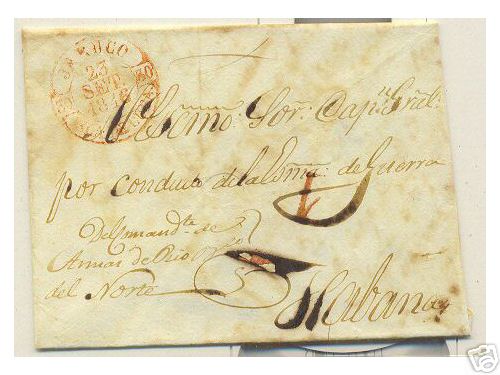 JARUCO
23
SEP.
Al Escmo. Sor. Capn. Gral.
por conducto de la Coma. de Guerra
Del mandte. de
Armas de Rio
del Norte
Habana